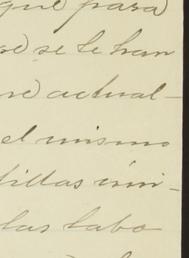 que para
se te han
re actual-
el mismo
tillas úni-
las tabo